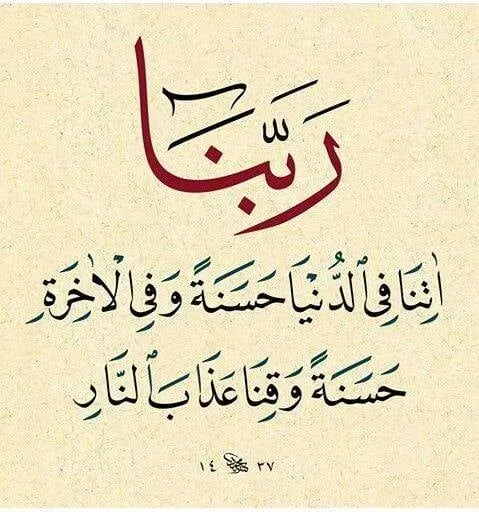 رَبَّنَا
اٰتِنَا فِی ٱلدُّنْیَا حَسَنَةً وَ فِی الْاٰخِرَةِ
حَسَنَةً وَ قِنَا عَذَابَ ٱلنَّارِ
١٤ ٣٧